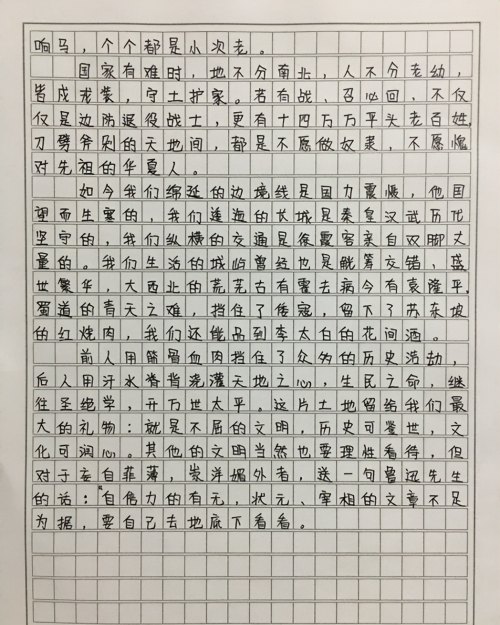 响马，个个都是小次老。
国家有难时，地不分南北，人不分老幼，
皆成戎装，守土护家。若有战、召必回，不仅
仅是边防退役战士，更有十四万万平头老百姓，
刀劈斧剁的天地间，都是不愿做奴隶，不愿愧
对先祖的华夏人。
如今我们绵延的边境线是国力震慑，他国
望而生寒的，我们逶迤的长城是秦皇汉武历代
坚守的，我们纵横的交通是徐霞客亲自双脚丈
量的。我们生活的城屿曾经也是觥筹交错，盛
世繁华，大西北的荒芜古有霍去病今有袁隆平，
蜀道的青天之难，挡住了倭寇，留下了苏东坡
的红烧肉，我们还能品到李太白的花间酒。
前人用筋骨血肉挡住了众多的历史浩劫，
后人用汗水脊背浇灌天地之心，生民之命，继
往圣绝学，开万世太平。这片土地留给我们最
大的礼物：就是不屈的文明，历史可鉴世，文
化可润心。其他的文明当然也要理性看待，但
对于妄自菲薄，崇洋媚外者，送一句鲁迅先生
的话：“自信力的有无，状元、宰相的文章不足
为据，要自己去地底下看看。